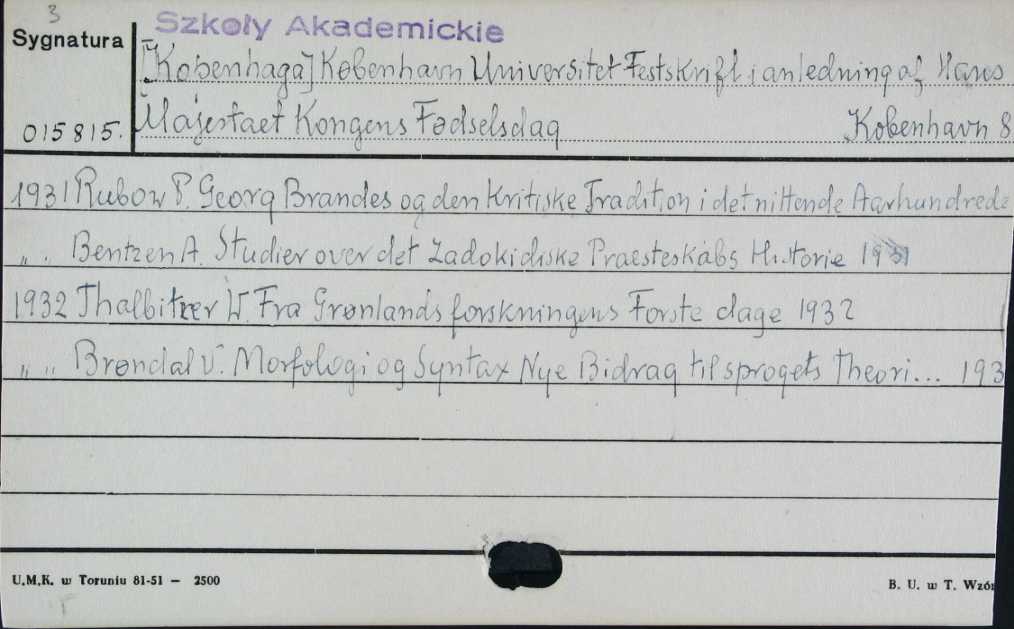 3
Szkoły Akademickie
Sygnatura
[Kopenhaga] København Universitet Festskrift i anledning af Hans
015815. Majestaet Kongens Fødselsdag København 8
1931 Rubow P. Georg Brandes og den Kritiske Tradition i det nittende Aarhundrede
„ . Bentzen A. Studier over det Zadokidiske Praesteskabs Historie 1931
1932 Thalbitzer W. Fra Grønlandsforskningens Første dage 1932
„ „ Brøndal V. Morfologi og Syntax Nye Bidrag til sprogets Theori... 193
U.M.K. w Toruniu 81-51 — 2500
B. U. w T. Wzór